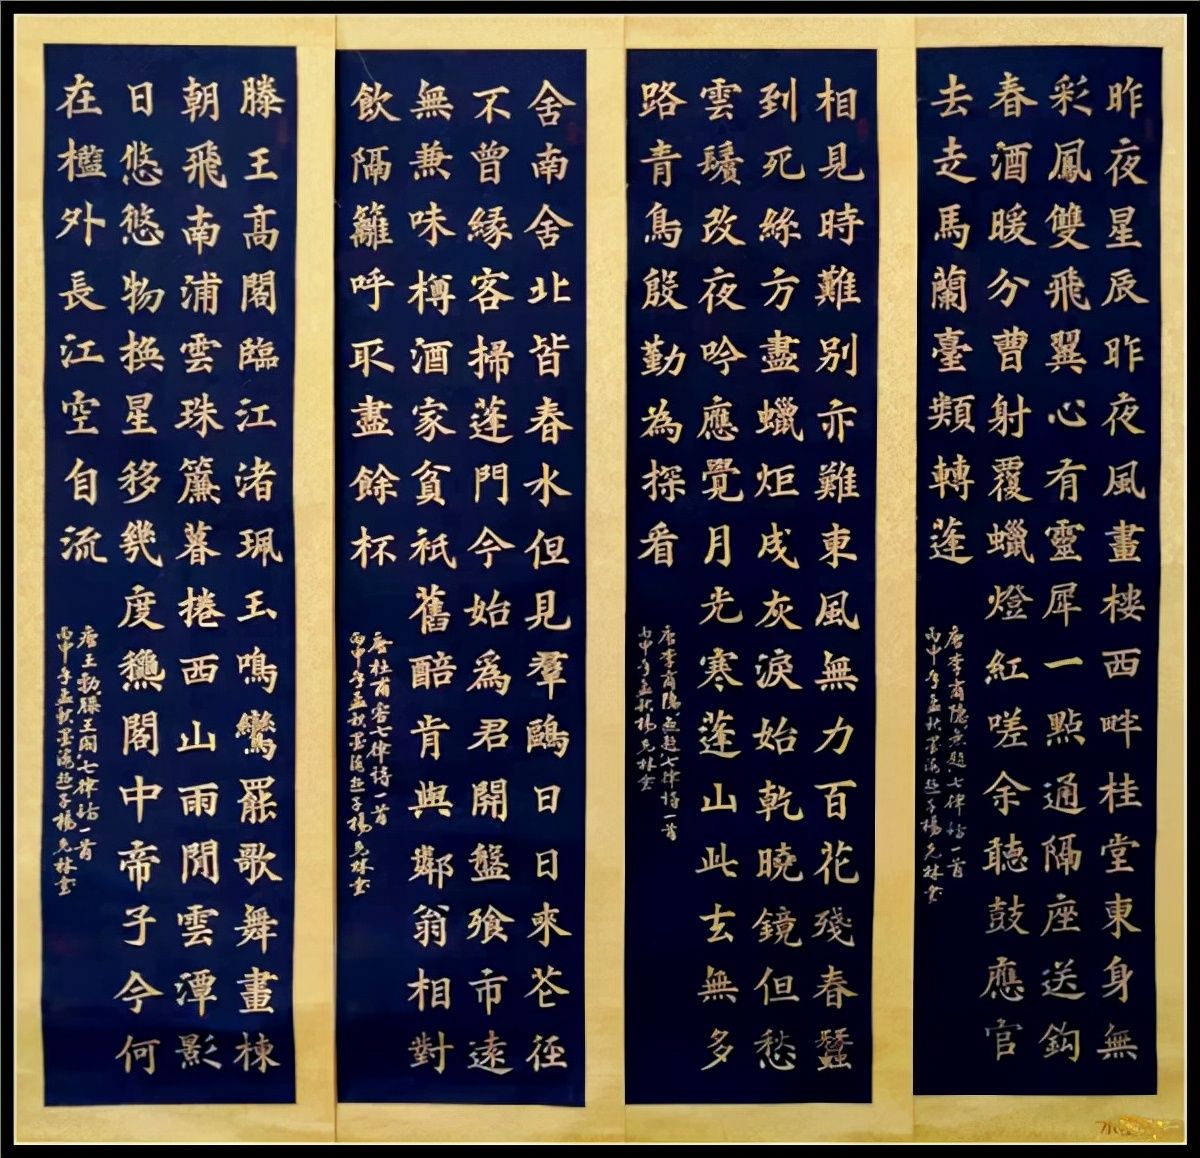 昨夜星辰昨夜風畫樓西畔桂堂東身無
彩鳳雙飛翼心有靈犀一點通隔座送鈎
春酒暖分曹射覆蠟燈紅嗟余聽鼓應官
去走馬蘭臺類轉蓬
唐李商隱無題七律詩一首
丙申年孟秋墨海遊子楊克林書
相見時難別亦難東風無力百花殘春蠶
到死絲方盡蠟炬成灰淚始乾曉鏡但愁
雲鬢改夜吟應覺月光寒蓬山此去無多
路青鳥殷勤為探看
唐李商隱無題七律詩一首
丙申年孟秋楊克林書
舍南舍北皆春水但見羣鷗日日來花徑
不曾緣客掃蓬門今始爲君開盤飧市遠
無兼味樽酒家貧衹舊醅肯與鄰翁相對
飲隔籬呼取盡餘杯
唐杜甫客七律詩一首
丙申年孟秋墨海遊子楊克林書
滕王高閣臨江渚珮玉鳴鸞罷歌舞畫棟
朝飛南浦雲珠簾暮捲西山雨閒雲潭影
日悠悠物換星移幾度龝閣中帝子今何
在檻外長江空自流
唐王勃滕王閣七律詩一首
丙申年孟秋墨海遊子楊克林書